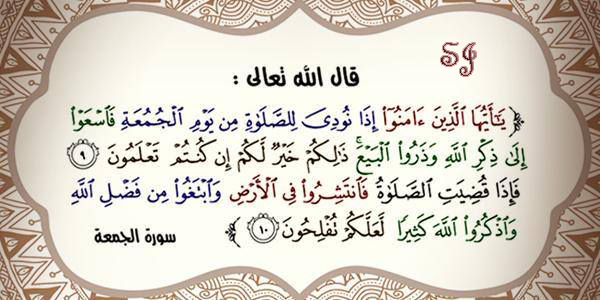 SJ
قال الله تعالى :
﴿ يَـٰٓأَيُّهَا ٱلَّذِينَ ءَامَنُوٓا۟ إِذَا نُودِىَ لِلصَّلَوٰةِ مِن يَوْمِ ٱلْجُمُعَةِ فَٱسْعَوْا۟
إِلَىٰ ذِكْرِ ٱللَّهِ وَذَرُوا۟ ٱلْبَيْعَ ۚ ذَٰلِكُمْ خَيْرٌ لَّكُمْ إِن كُنتُمْ تَعْلَمُونَ ٩
فَإِذَا قُضِيَتِ ٱلصَّلَوٰةُ فَٱنتَشِرُوا۟ فِى ٱلْأَرْضِ وَٱبْتَغُوا۟ مِن فَضْلِ ٱللَّهِ
وَٱذْكُرُوا۟ ٱللَّهَ كَثِيرًا لَّعَلَّكُمْ تُفْلِحُونَ ١٠ ﴾
سورة الجمعة